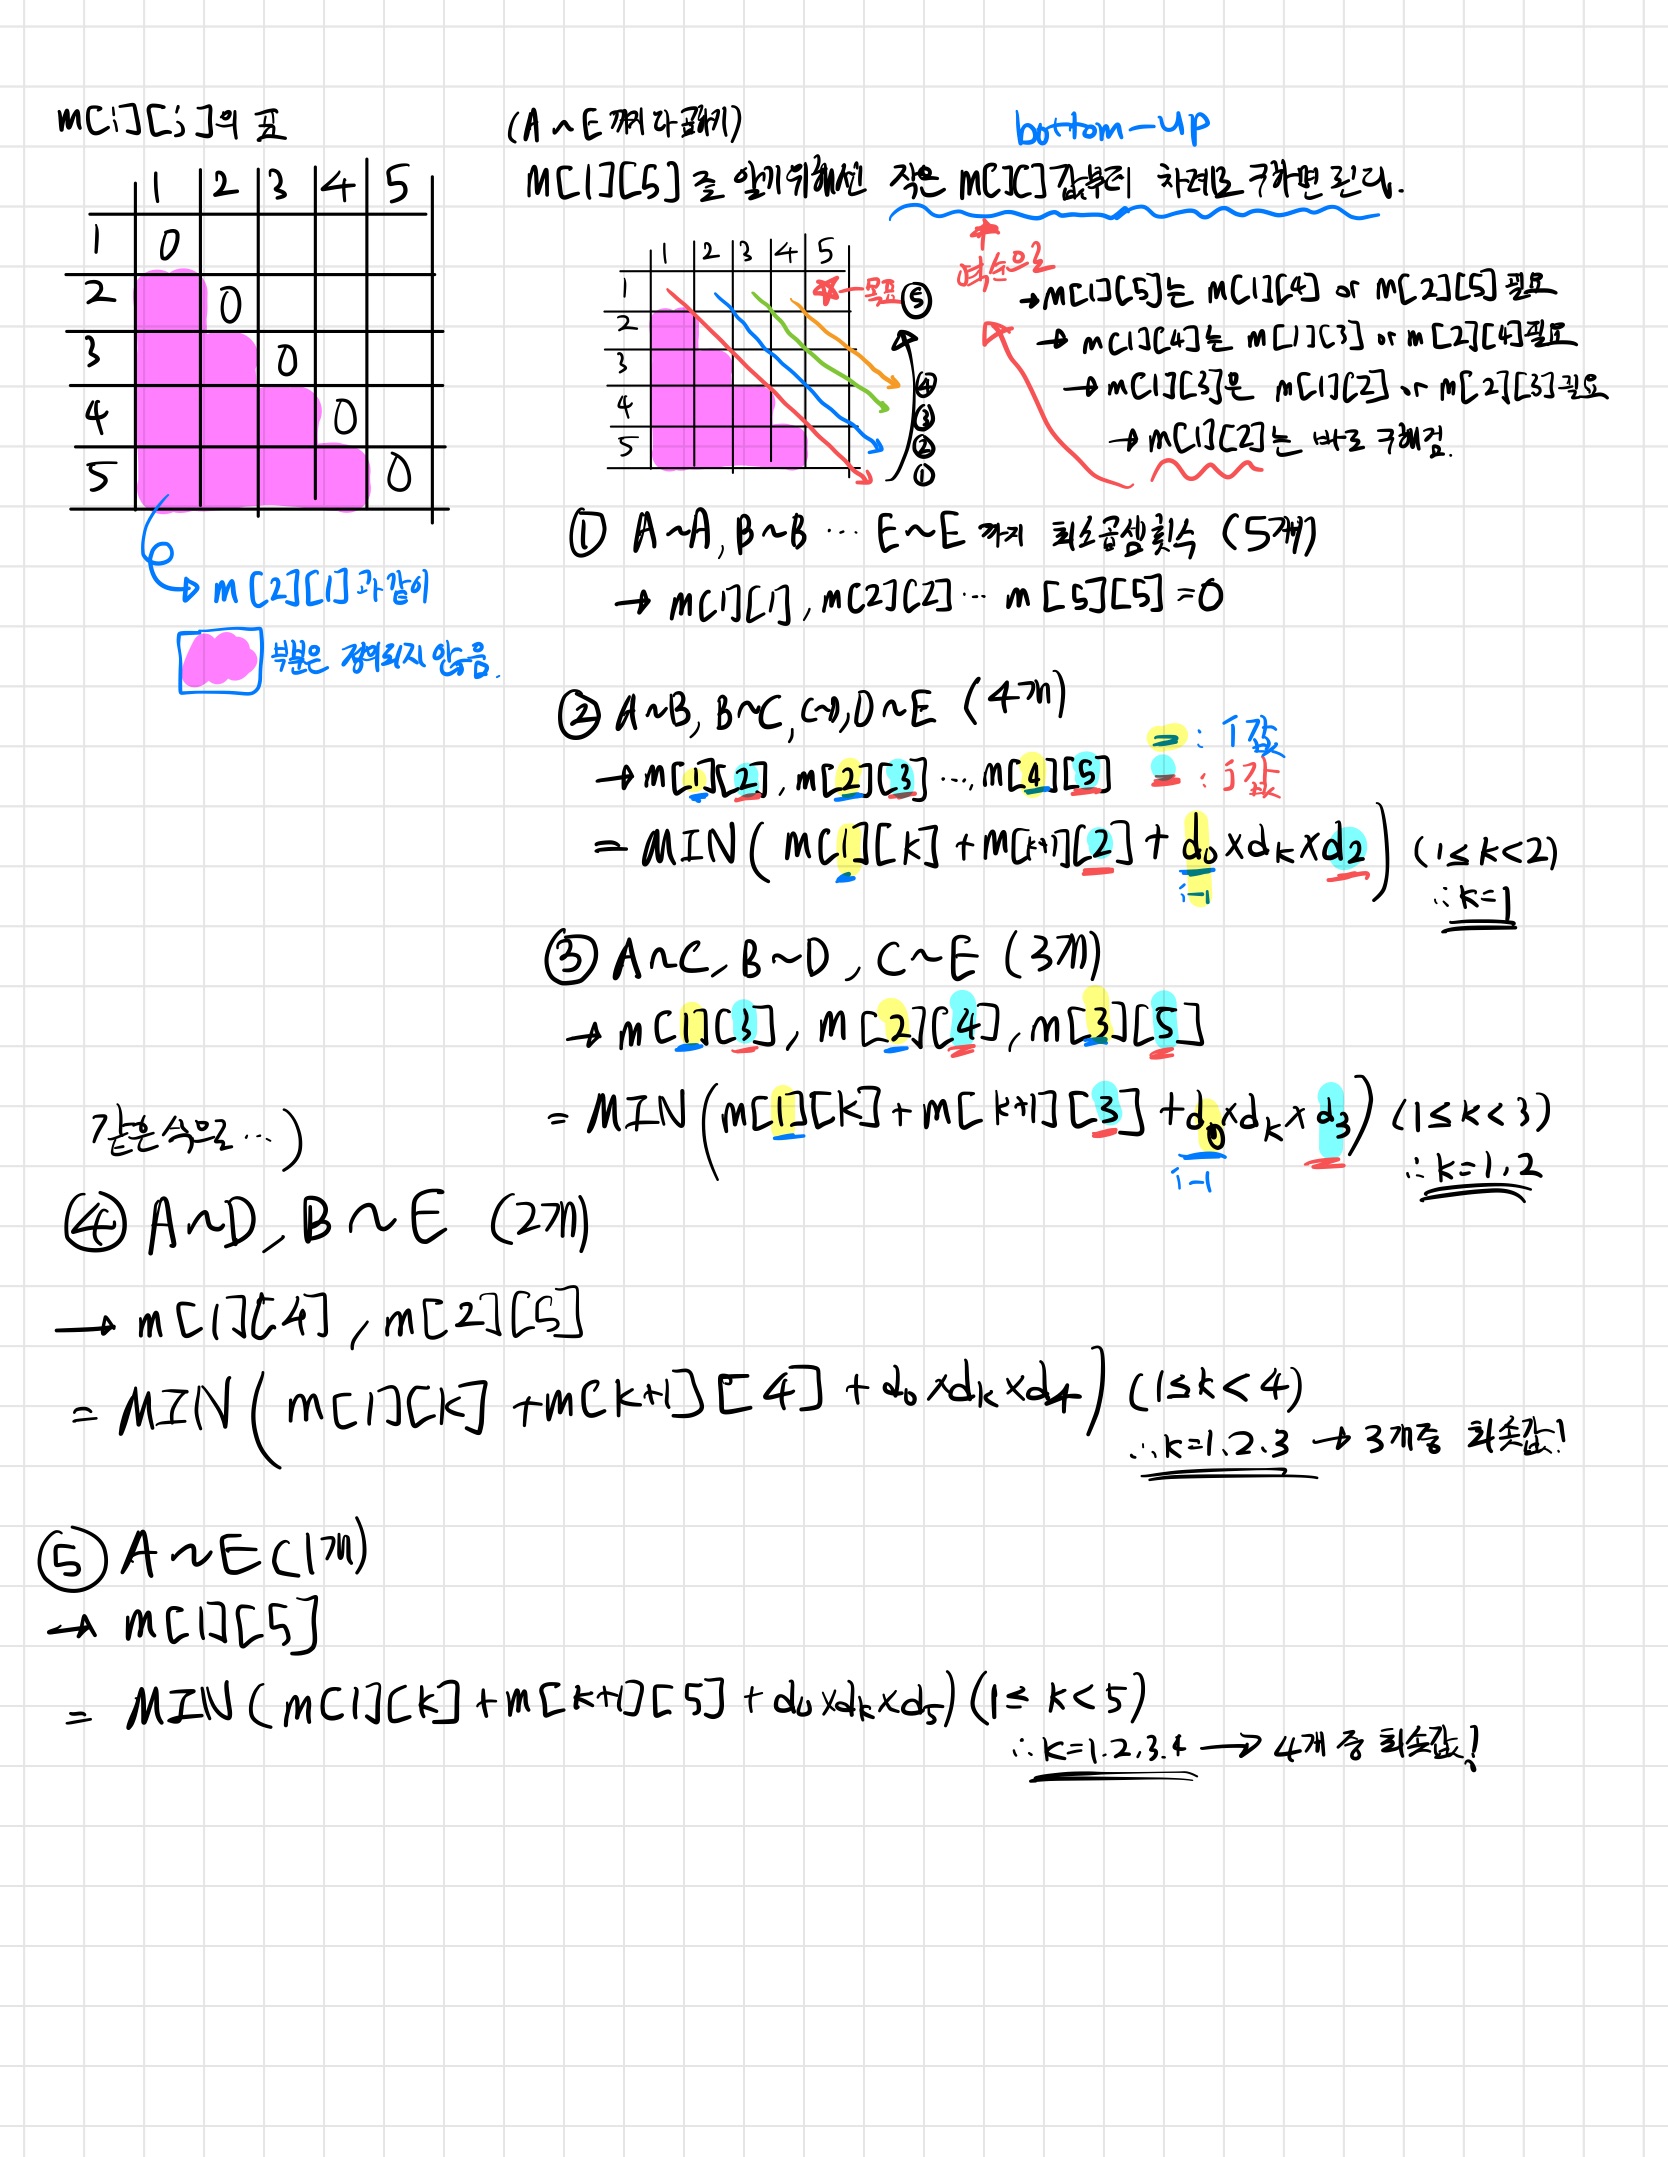 m[i][j]의 표
1 2 3 4 5
1 0
2 0
3 0
4 0
5 0
m[2][1]과 같이
부분은 정의되지 않음.
(A~E까지 다 곱하기)
bottom-up
m[1][5]를 알기위해선 작은 m[][]값부터 차례로 구하면 된다.
역순으로
1 2 3 4 5
1 목표 ⑤
2
3
4 ④
③
5 ②
①
→m[1][5]는 m[1][4] or m[2][5] 필요
→ m[1][4]는 m[1][3] or m[2][4]필요
→ m[1][3]은 m[1][2] or m[2][3]필요
→ m[1][2]는 바로 구해짐.
① A~A, B~B ... E~E 까지 최소곱셈횟수 (5개)
→ m[1][1], m[2][2] ... m[5][5] = 0
② A~B, B~C, C~D, D~E (4개)
= : i값
: j값
→ m[1][2], m[2][3] ..., m[4][5]
= MIN( m[1][k] + m[k+1][2] + d₀ x dₖ x d₂ ) (1≤k<2)
i-1
∴k=1
③ A~C, B~D, C~E (3개)
→ m[1][3], m[2][4], m[3][5]
= MIN(m[1][k] + m[k+1][3] + d₀ x dₖ x d₃) (1≤k<3)
i-1
∴k=1,2
같은 식으로...)
④ A~D, B~E (2개)
→ m[1][4], m[2][5]
= MIN( m[1][k] + m[k+1][4] + d₀ x dₖ x d₄) (1≤k<4)
∴k=1.2.3 → 3개중 최솟값!
⑤ A~E (1개)
→ m[1][5]
= MIN(m[1][k] + m[k+1][5] + d₀ x dₖ x d₅) (1≤k<5)
∴k=1.2.3.4 → 4개 중 최솟값!